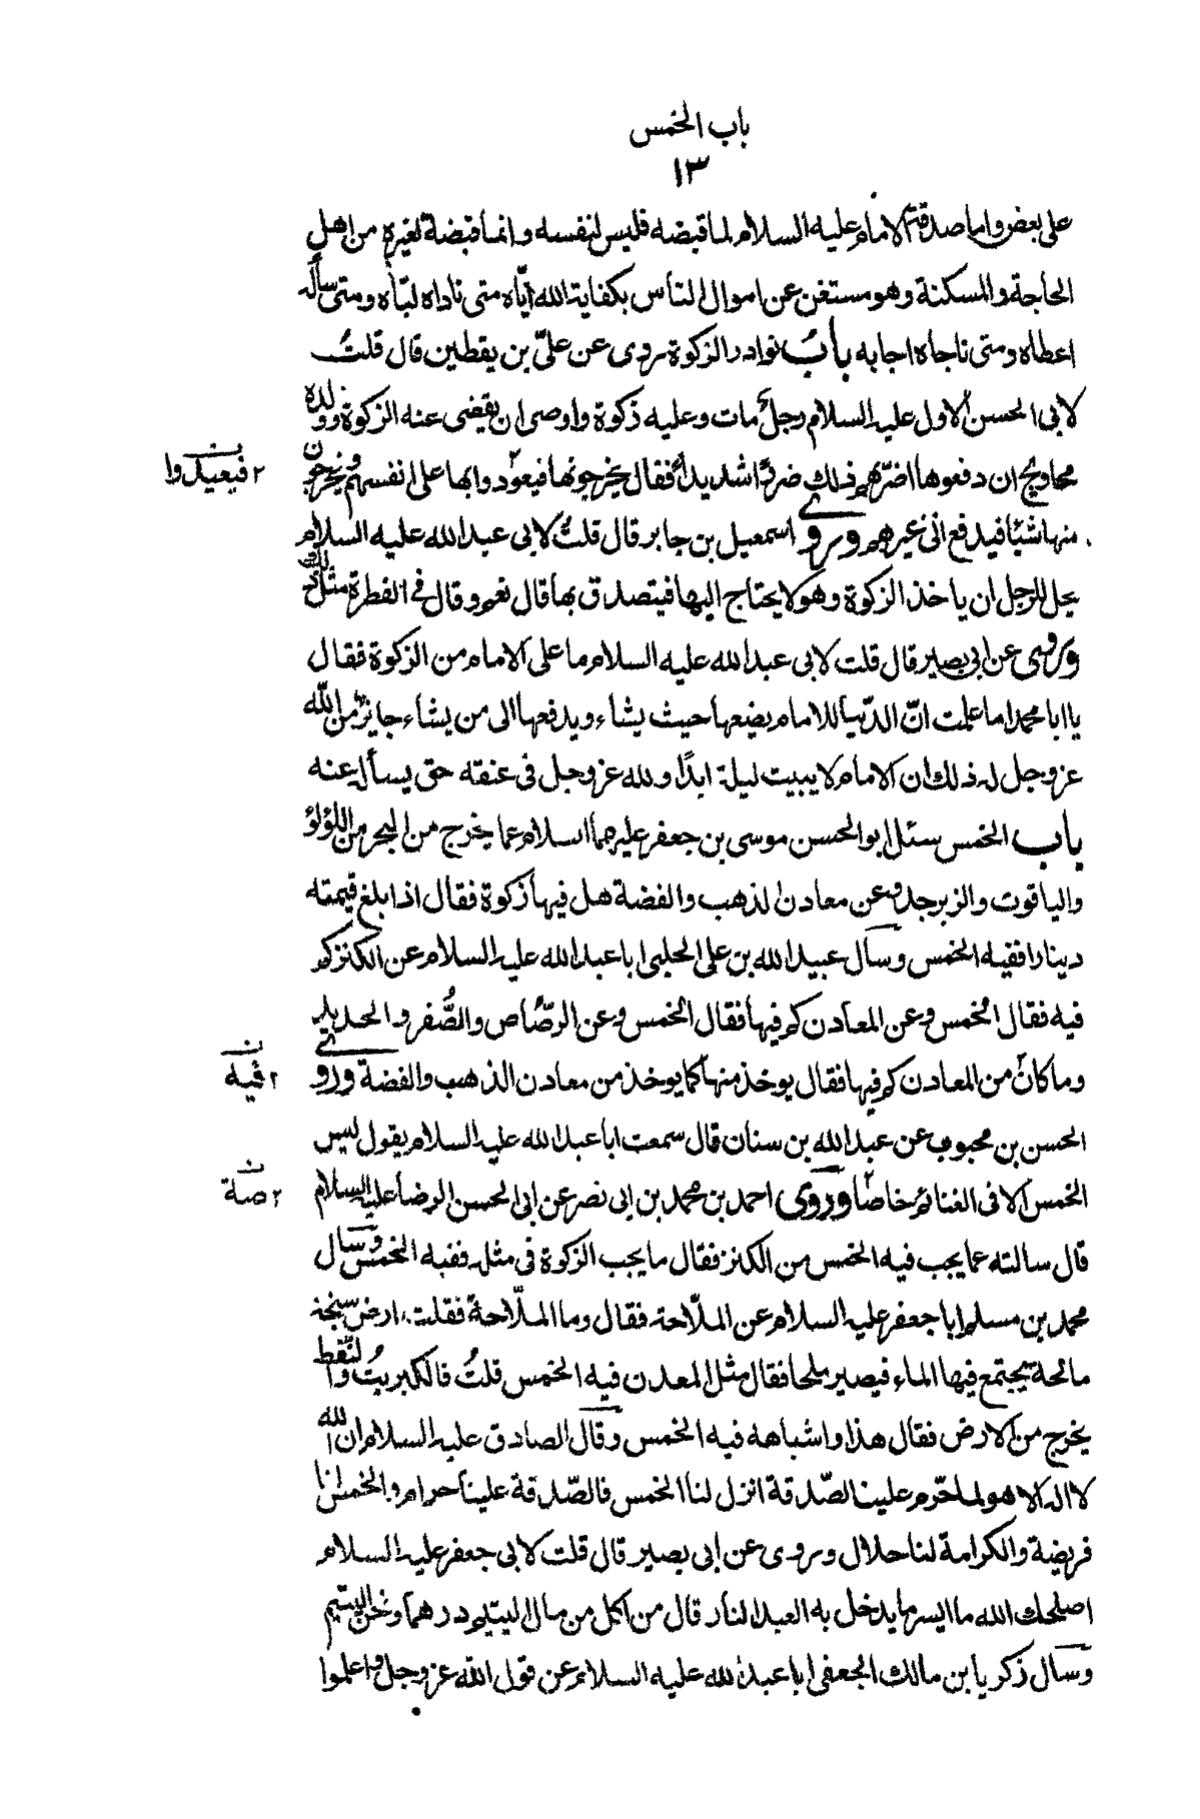 باب الخمس
١٣
على بعض واما صدقة الامام عليه السلام لما قبضه فليس لنفسه وانما قبضة لغيره من اهل
الحاجة والمسكنة وهو مستغن عن اموال الناس بكفاية الله ايّاه متى ناداه لبّاه ومتى سأله
اعطاه ومتى ناجاه اجابه بابُ نوادر الزكوة روى عن علىّ بن يقطين قال قلتُ
لابى الحسن الاول عليه السلام رجلٌ مات وعليه زكوة واوصى ان يقضى عنه الزكوة وولده
محاويج ان دفعوها اضرّ بهم ذلك ضررًا شديدًا فقال يخرجونها فيعودوا بها على انفسهم ويخرجون
منها شيئا فيدفع الى غيرهم وروى اسمعيل بن جابر قال قلتُ لابى عبد الله عليه السلام
يحل للرجل ان ياخذ الزكوة وهو لا يحتاج اليها فيتصدق بها قال نعم وقال فى الفطرة مثل ذلك
وروى عن ابى بصير قال قلت لابى عبد الله عليه السلام ما على الامام من الزكوة فقال
يا ابا محمد اما علمت انّ الدّنيا للامام يضعها حيث يشاء ويدفعها الى من يشاء جايز من الله
عز وجل له ذلك ان الامام لا يبيت ليلة ابدًا ولله عز وجل فى عنقه حق يسأله عنه
باب الخمس سئل ابو الحسن موسى بن جعفر عليهما السلام عما يخرج من البحر من اللؤلؤ
والياقوت والزبرجد وعن معادن الذهب والفضة هل فيها زكوة فقال اذا بلغ قيمته
دينارا ففيه الخمس وسأل عبيد الله بن على الحلبى ابا عبد الله عليه السلام عن الكنز كم
فيه فقال الخمس وعن المعادن كم فيها فقال الخمس وعن الرّصاص والصُّفر والحديد
وما كان من المعادن كم فيها فقال يوخذ منها كما يوخذ من معادن الذهب والفضة وروى
الحسن بن محبوب عن عبد الله بن سنان قال سمعت ابا عبد الله عليه السلام يقول ليس
الخمس الا فى الغنائم خاصّا وروى احمد بن محمد بن ابى نصر عن ابى الحسن الرضا عليه السلام
قال سالته عما يجب فيه الخمس من الكنز فقال ما يجب الزكوة فى مثله ففيه الخمس وسأل
محمد بن مسلم ابا جعفر عليه السلام عن الملّاحة فقال وما الملّاحة فقلت ارض سبخة
مالحة يجتمع فيها الماء فيصير ملحا فقال مثل المعدن فيه الخمس قلتُ فالكبريتُ والنّفط
يخرج من الارض فقال هذا واشباهه فيه الخمس وقال الصادق عليه السلام ان الله
لا اله الا هو لما حرّم علينا الصّدقة انزل لنا الخمس فالصّدقة علينا حرام والخمس لنا
فريضة والكرامة لنا حلال وروى عن ابى بصير قال قلت لابى جعفر عليه السلام
اصلحك الله ما ايسر ما يدخل به العبد النار قال من اكل من مال اليتيم درهما ونحن اليتيم
وسأل زكريا بن مالك الجعفى ابا عبد الله عليه السلام عن قول الله عز وجل واعلموا
٢ فيعيدوا
٢ فيه
٢ صة